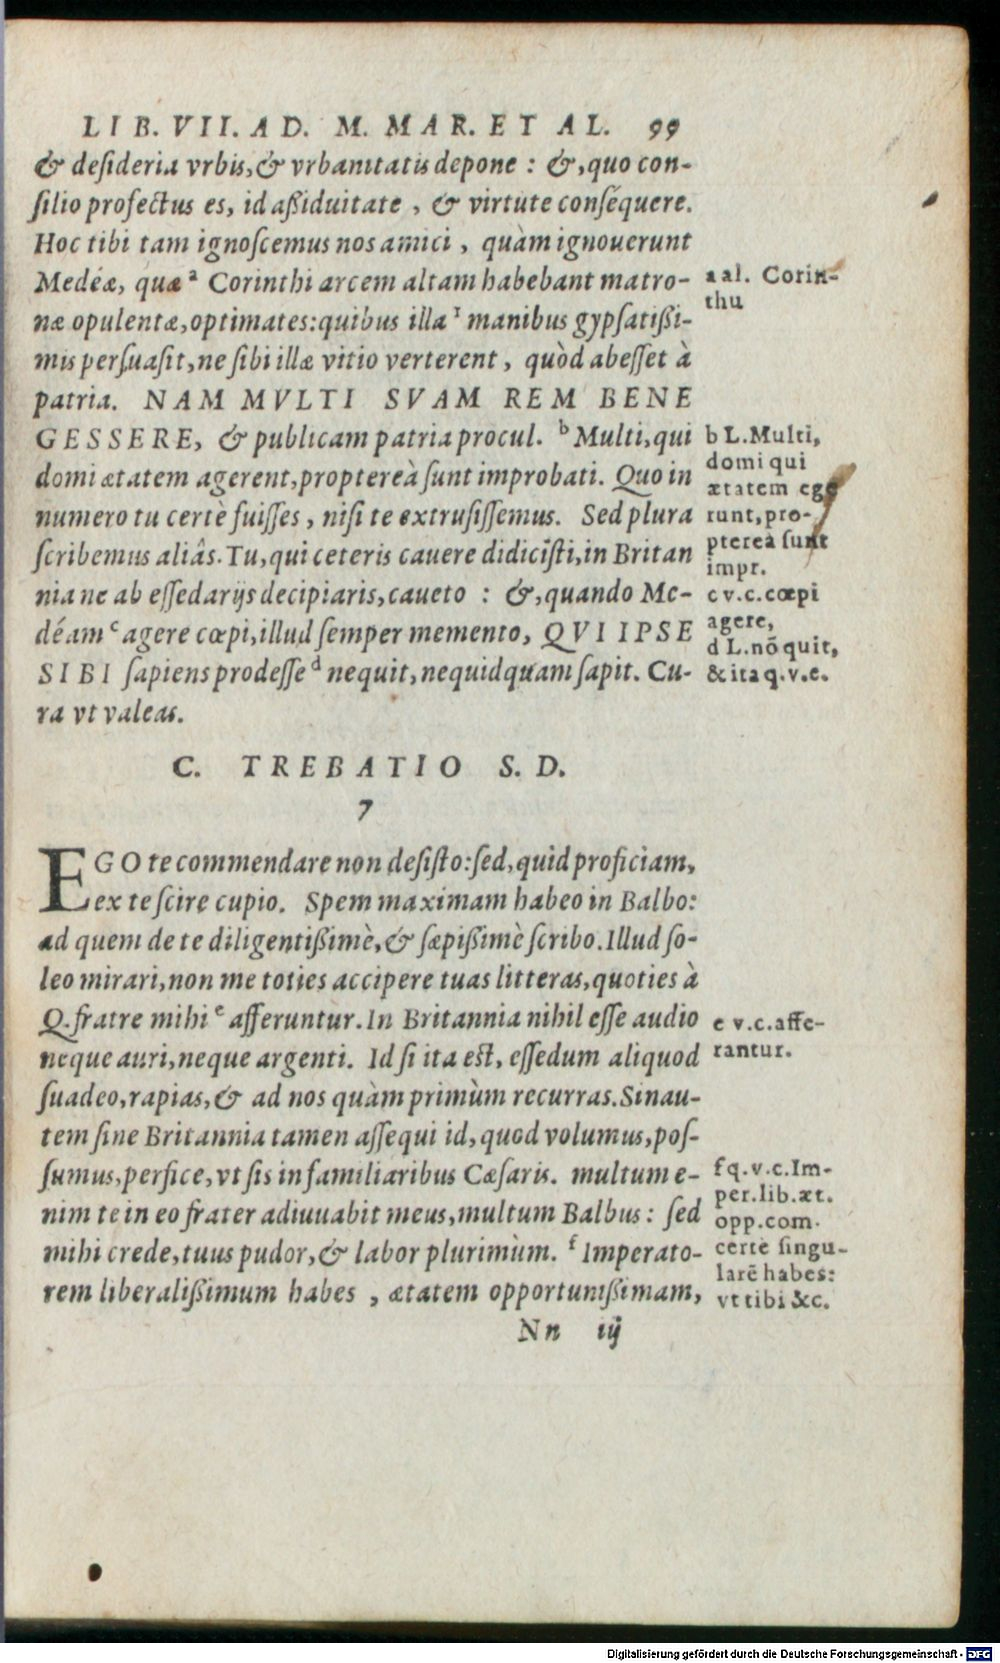 LIB. VII. AD. M. MAR. ET AL. 99
& deſideria vrbis, & vrbanitatis depone : &, quo con-
ſilio profectus es, id aßiduitate , & virtute conſéquere.
Hoc tibi tam ignoſcemus nos amici , quàm ignouerunt
Medéæ, quæ a Corinthi arcem altam habebant matro-
næ opulentæ, optimates: quibus illa 1 manibus gypſatißi-
mis perſuaſit, ne ſibi illæ vitio verterent , quòd abeſſet à
patria. NAM MVLTI SVAM REM BENE
GESSERE, & publicam patria procul. b Multi, qui
domi ætatem agerent, proptereà ſunt improbati. Quo in
numero tu certè fuiſſes , niſi te extruſiſſemus. Sed plura
ſcribemus aliâs. Tu, qui ceteris cauere didiciſti, in Britan
nia ne ab eſſedarijs decipiaris, caueto : &, quando Me-
déam c agere cœpi, illud ſemper memento, QVI IPSE
SIBI ſapiens prodeſſe d nequit, nequidquam ſapit. Cu-
ra vt valeas.
a al. Corin-
thu
b L. Multi,
domi qui
ætatem ege
runt, pro-
ptereà ſunt
impr.
c v.c. cœpi
agere,
d L. nō quit,
& ita q.v.e.
C. TREBATIO S. D.
7
EGO te commendare non deſiſto: ſed, quid proficiam,
ex te ſcire cupio. Spem maximam habeo in Balbo:
ad quem de te diligentißimè, & ſæpißimè ſcribo. Illud ſo-
leo mirari, non me toties accipere tuas litteras, quoties à
Q. fratre mihi e afferuntur. In Britannia nihil eſſe audio
neque auri, neque argenti. Id ſi ita eſt, eſſedum aliquod
ſuadeo, rapias, & ad nos quàm primùm recurras. Sin au-
tem ſine Britannia tamen aſſequi id, quod volumus, poſ-
ſumus, perfice, vt ſis in familiaribus Cæſaris. multum e-
nim te in eo frater adiuuabit meus, multum Balbus : ſed
mihi crede, tuus pudor, & labor plurimùm. f Imperato-
rem liberalißimum habes , ætatem opportunißimam,
e v.c. affe-
rantur.
f q.v.c. Im-
per. lib. æt.
opp. com.
certè ſingu-
larē habes:
vt tibi &c.
Nn iij
Digitalisierung gefördert durch die Deutsche Forschungsgemeinschaft - DFG